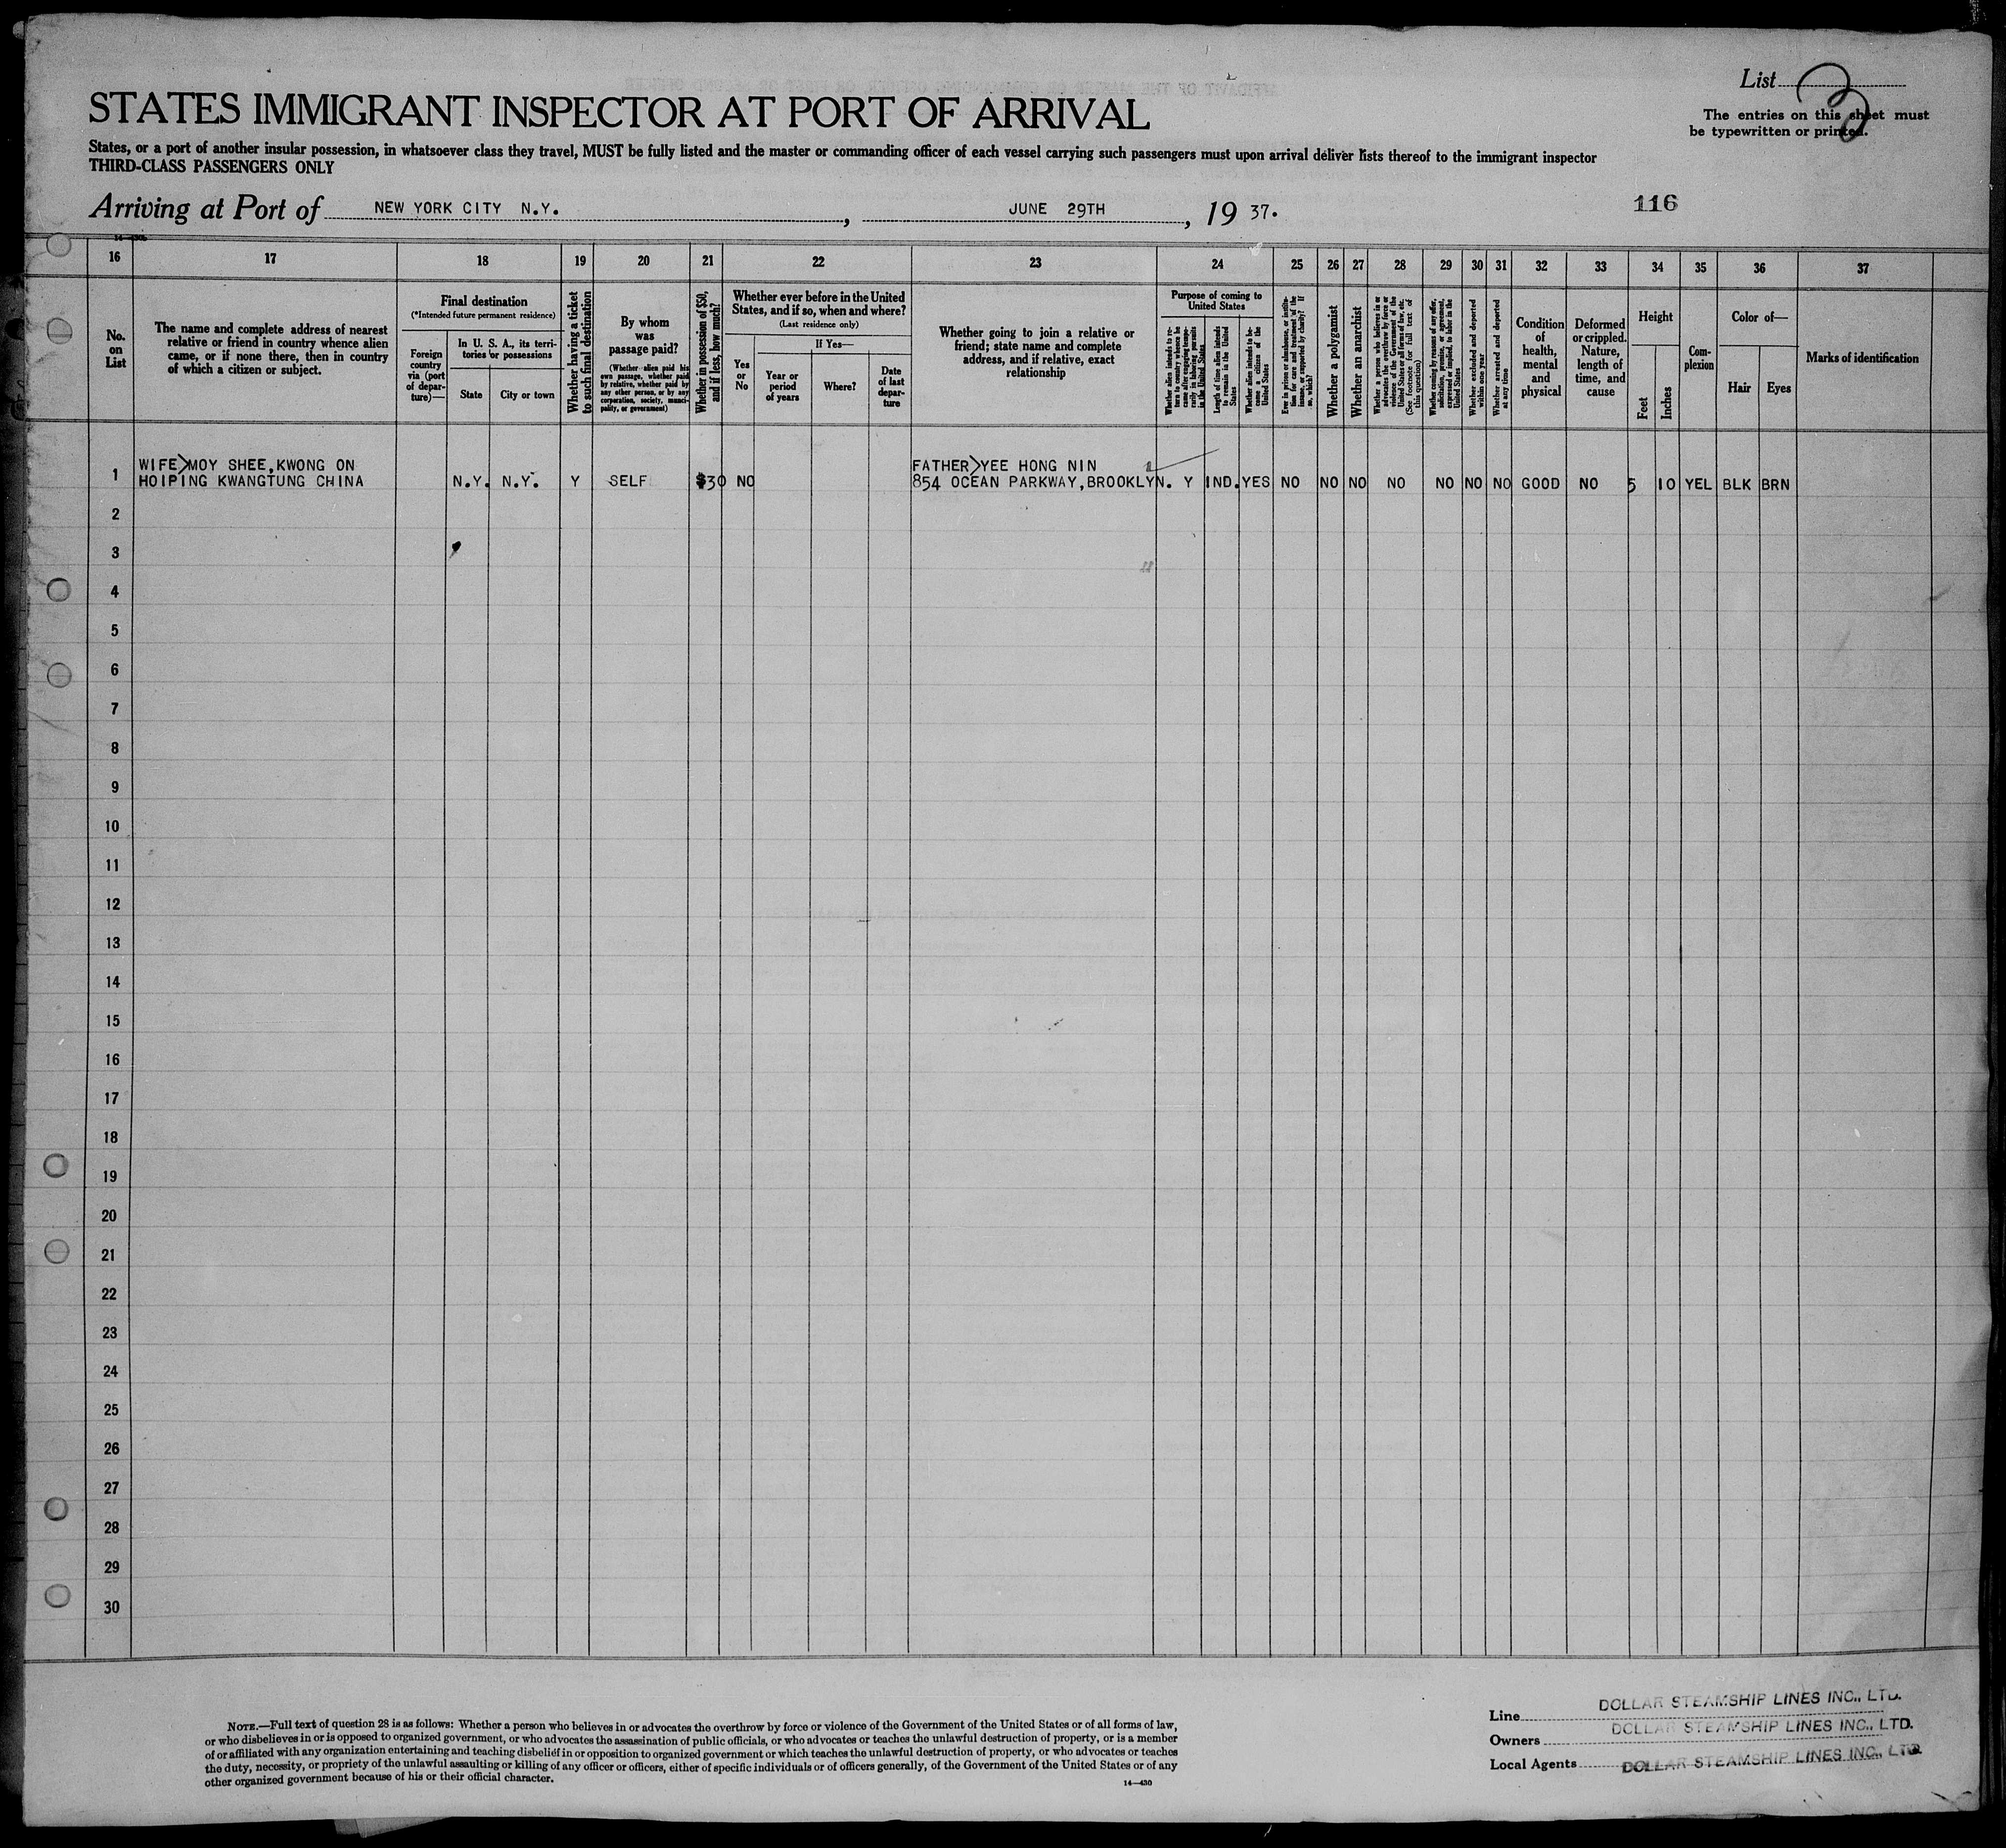 List 3
The entries on this sheet must
be typewritten or printed.
STATES IMMIGRANT INSPECTOR AT PORT OF ARRIVAL
States, or a port of another insular possession, in whatsoever class they travel, MUST be fully listed and the master or commanding officer of each vessel carrying such passengers must upon arrival deliver lists thereof to the immigrant inspector
THIRD-CLASS PASSENGERS ONLY
Arriving at Port of NEW YORK CITY N.Y. , JUNE 29TH , 19 37.
116
16 17 18 19 20 21 22 23 24 25 26 27 28 29 30 31 32 33 34 35 36 37
No.
on
List
The name and complete address of nearest
relative or friend in country whence alien
came, or if none there, then in country
of which a citizen or subject.
Final destination
(*Intended future permanent residence)
Foreign
country
via (port
of depar-
ture)—
In U. S. A., its terri-
tories or possessions
State
City or town
Whether having a ticket
to such final destination
By whom
was
passage paid?
(Whether alien paid his
own passage, whether paid
by relative, whether paid by
any other person, or by any
corporation, society, munici-
pality, or government)
Whether in possession of $50,
and if less, how much?
Whether ever before in the United
States, and if so, when and where?
(Last residence only)
Yes
or
No
If Yes—
Year or
period
of years
Where?
Date
of last
depar-
ture
Whether going to join a relative or
friend; state name and complete
address, and if relative, exact
relationship
Purpose of coming to
United States
Whether alien intends to re-
turn to country whence he
came after engaging tempo-
rarily in laboring pursuits
in the United States
Length of time alien intends
to remain in the United
States
Whether alien intends to be-
come a citizen of the
United States
Ever in prison or almshouse, or institu-
tion for care and treatment of the
insane, or supported by charity? If
so, which?
Whether a polygamist
Whether an anarchist
Whether a person who believes in or
advocates the overthrow by force or
violence of the Government of the
United States or all forms of law, etc.
(See footnote for full text of
this question)
Whether coming by reasons of any offer,
solicitation, promise, or agreement,
expressed or implied, to labor in the
United States
Whether excluded and deported
within one year
Whether arrested and deported
at any time
Condition
of
health,
mental
and
physical
Deformed
or crippled.
Nature,
length of
time, and
cause
Height
Feet
Inches
Com-
plexion
Color of—
Hair
Eyes
Marks of identification
WIFE>MOY SHEE,KWONG ON FATHER>YEE HONG NIN
1 HOIPING KWANGTUNG CHINA N.Y. N.Y. Y SELF $30 NO 854 OCEAN PARKWAY,BROOKLYN. Y IND. YES NO NO NO NO NO NO NO GOOD NO 5 10 YEL BLK BRN
2
3
4
5
6
7
8
9
10
11
12
13
14
15
16
17
18
19
20
21
22
23
24
25
26
27
28
29
30
NOTE.—Full text of question 28 is as follows: Whether a person who believes in or advocates the overthrow by force or violence of the Government of the United States or of all forms of law,
or who disbelieves in or is opposed to organized government, or who advocates the assassination of public officials, or who advocates or teaches the unlawful destruction of property, or is a member
of or affiliated with any organization entertaining and teaching disbelief in or opposition to organized government or which teaches the unlawful destruction of property, or who advocates or teaches
the duty, necessity, or propriety of the unlawful assaulting or killing of any officer or officers, either of specific individuals or of officers generally, of the Government of the United States or of any
other organized government because of his or their official character.
14—430
Line DOLLAR STEAMSHIP LINES INC., LTD.
Owners DOLLAR STEAMSHIP LINES INC., LTD.
Local Agents DOLLAR STEAMSHIP LINES INC., LTD.